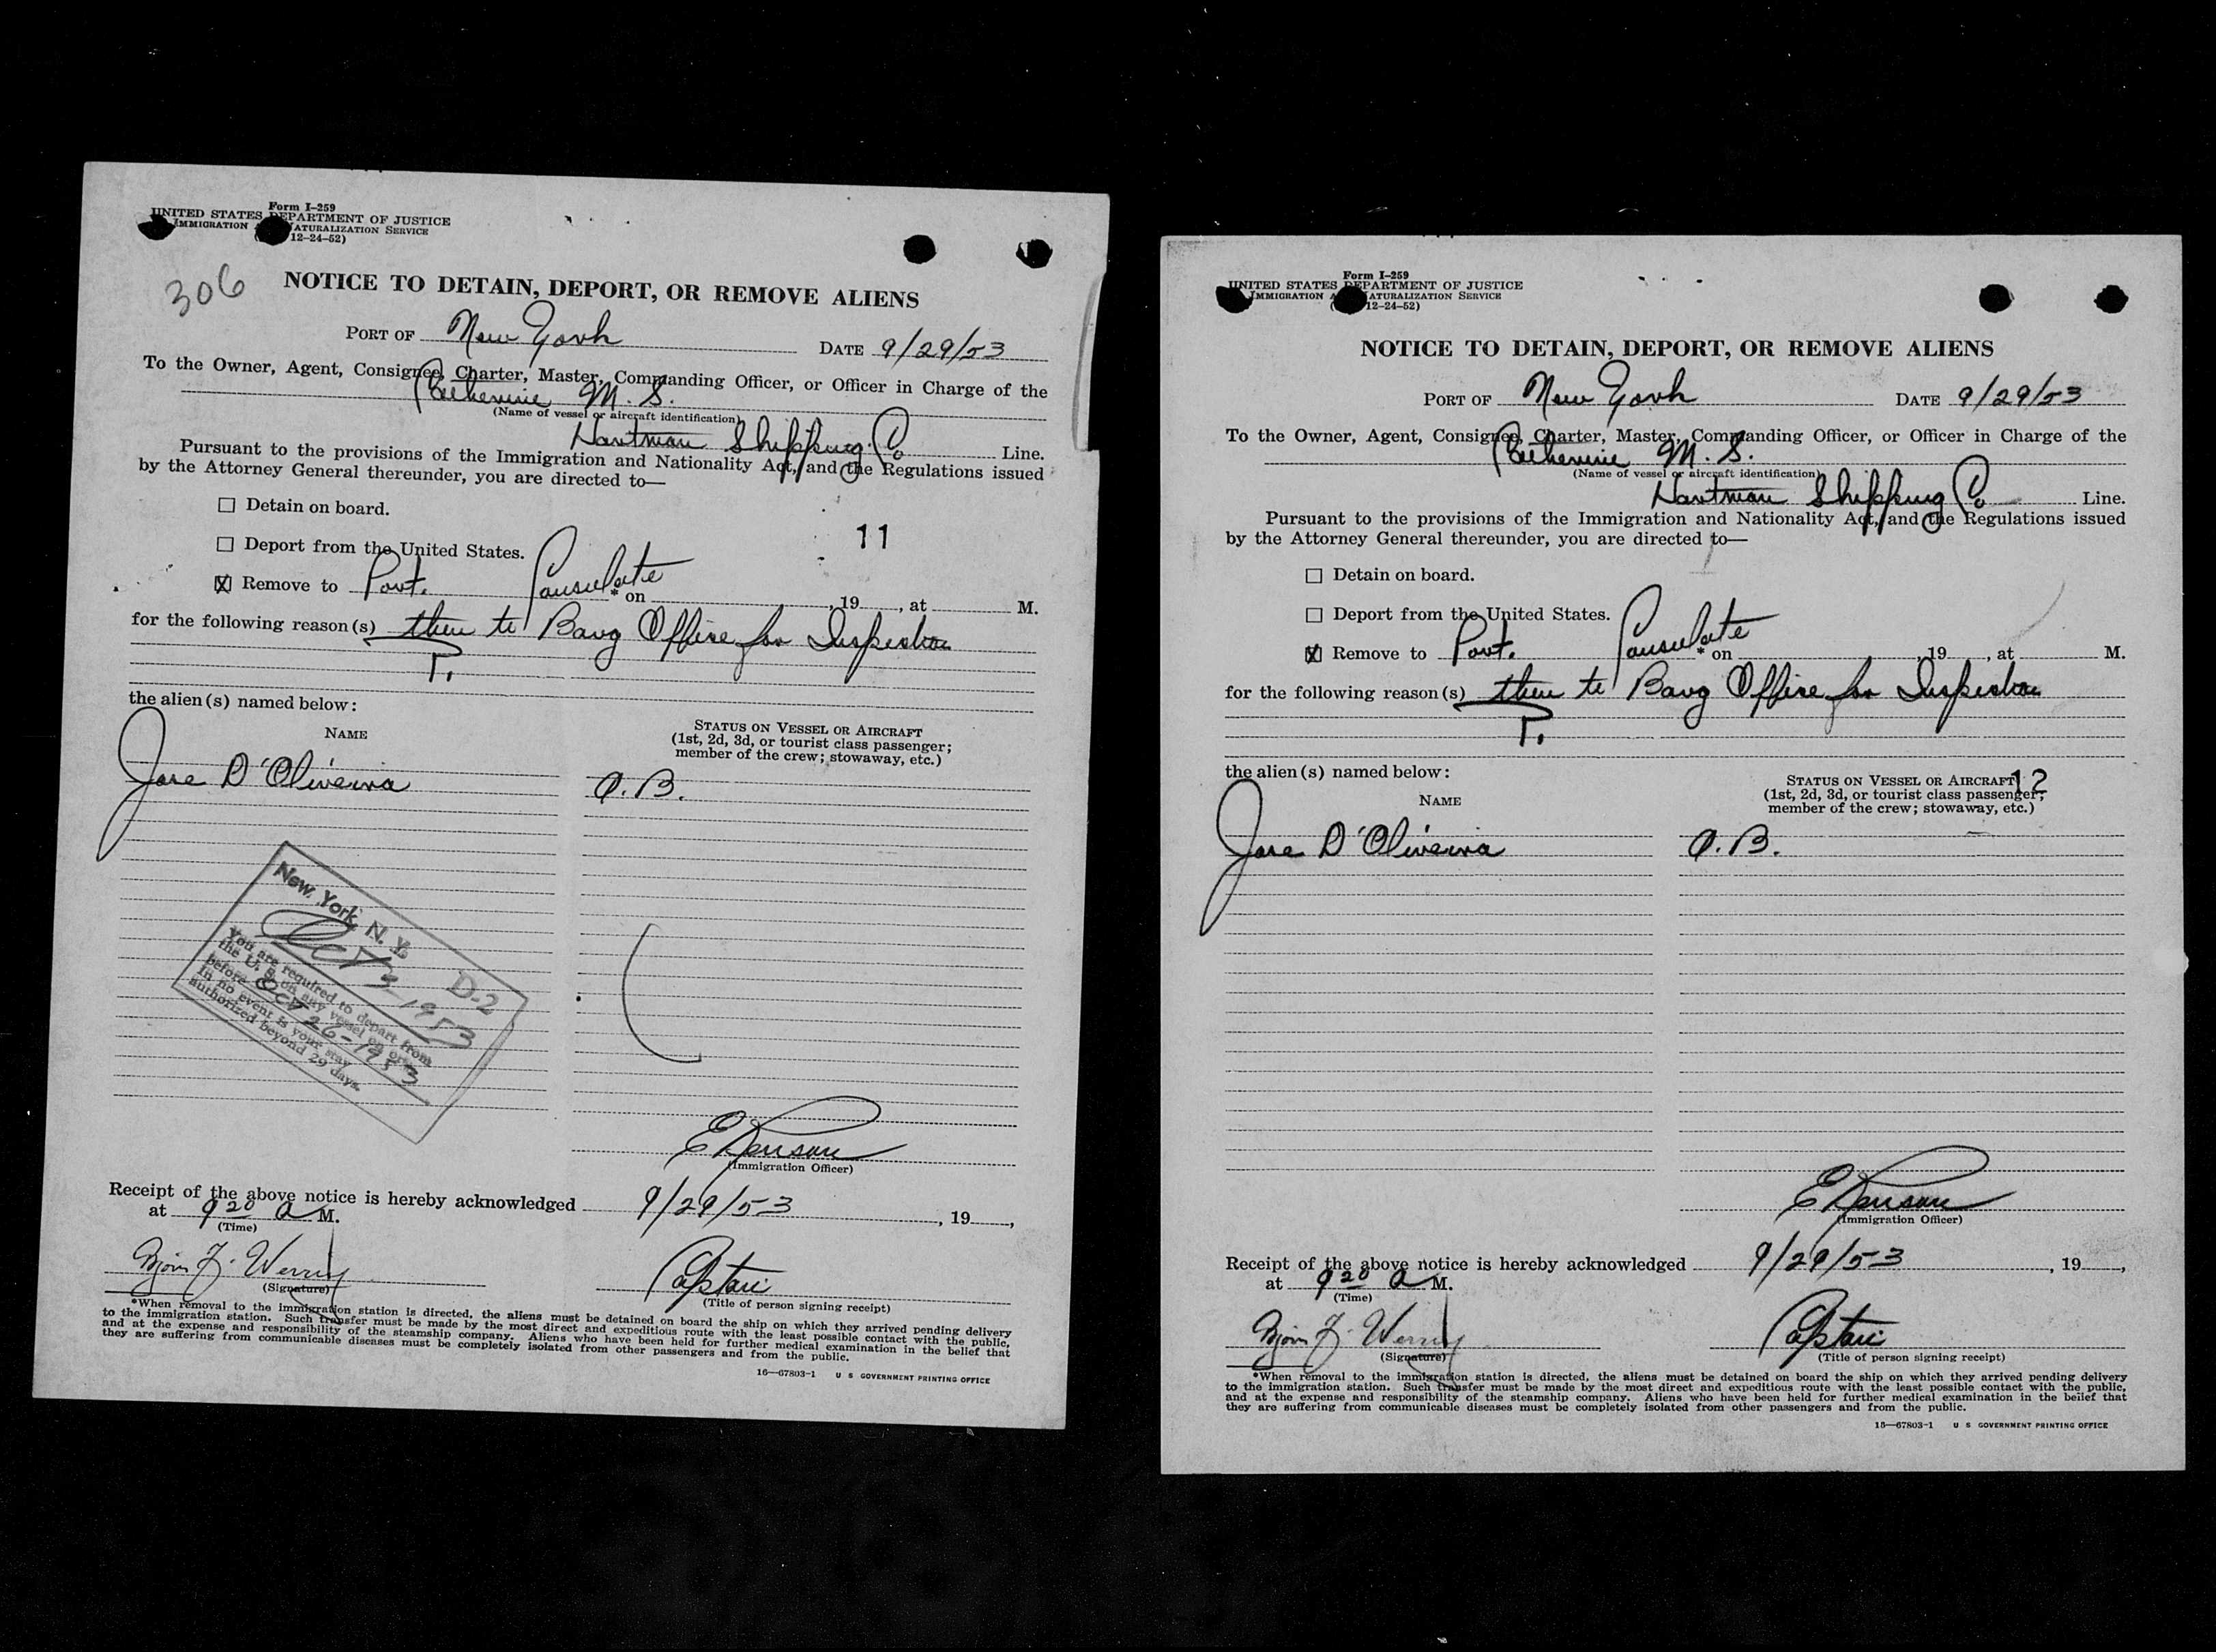 Form I-259
UNITED STATES DEPARTMENT OF JUSTICE
IMMIGRATION NATURALIZATION SERVICE
12-24-52)
306
NOTICE TO DETAIN, DEPORT, OR REMOVE ALIENS
PORT OF New York DATE 9/29/53
To the Owner, Agent, Consignee, Charter, Master, Commanding Officer, or Officer in Charge of the
Catherine M. S.
(Name of vessel or aircraft identification)
Hartman Shipping Co Line.
Pursuant to the provisions of the Immigration and Nationality Act, and the Regulations issued
by the Attorney General thereunder, you are directed to—
☐ Detain on board.
11
☐ Deport from the United States.
☒ Remove to Port. Consulate * on , 19 , at M.
for the following reason(s) then to Barg Office for Inspection
P.
the alien(s) named below:
NAME
STATUS ON VESSEL OR AIRCRAFT
(1st, 2d, 3d, or tourist class passenger;
member of the crew; stowaway, etc.)
Jose D'Oliveira A.B.
New York, N. Y. D-2
Oct 3 1953
You are required to depart from
the U. S. on any vessel on or
before Oct 26-1953
In no event is your stay
authorized beyond 29 days.
(Immigration Officer)
Receipt of the above notice is hereby acknowledged 9/29/53 , 19 ,
at 9 20 A M.
(Time)
Captain
(Signature) (Title of person signing receipt)
*When removal to the immigration station is directed, the aliens must be detained on board the ship on which they arrived pending delivery
to the immigration station. Such transfer must be made by the most direct and expeditious route with the least possible contact with the public,
and at the expense and responsibility of the steamship company. Aliens who have been held for further medical examination in the belief that
they are suffering from communicable diseases must be completely isolated from other passengers and from the public.
16—67803-1 U S GOVERNMENT PRINTING OFFICE
Form I-259
UNITED STATES DEPARTMENT OF JUSTICE
IMMIGRATION NATURALIZATION SERVICE
12-24-52)
NOTICE TO DETAIN, DEPORT, OR REMOVE ALIENS
PORT OF New York DATE 9/29/53
To the Owner, Agent, Consignee, Charter, Master, Commanding Officer, or Officer in Charge of the
Catherine M. S.
(Name of vessel or aircraft identification)
Hartman Shipping Co Line.
Pursuant to the provisions of the Immigration and Nationality Act, and the Regulations issued
by the Attorney General thereunder, you are directed to—
☐ Detain on board.
☐ Deport from the United States.
☒ Remove to Port. Consulate * on , 19 , at M.
for the following reason(s) then to Barg Office for Inspection
P.
the alien(s) named below:
12
NAME
STATUS ON VESSEL OR AIRCRAFT
(1st, 2d, 3d, or tourist class passenger;
member of the crew; stowaway, etc.)
Jose D'Oliveira A.B.
(Immigration Officer)
Receipt of the above notice is hereby acknowledged 9/29/53 , 19 ,
at 9 20 A M.
(Time)
Captain
(Signature) (Title of person signing receipt)
*When removal to the immigration station is directed, the aliens must be detained on board the ship on which they arrived pending delivery
to the immigration station. Such transfer must be made by the most direct and expeditious route with the least possible contact with the public,
and at the expense and responsibility of the steamship company. Aliens who have been held for further medical examination in the belief that
they are suffering from communicable diseases must be completely isolated from other passengers and from the public.
16—67803-1 U S GOVERNMENT PRINTING OFFICE